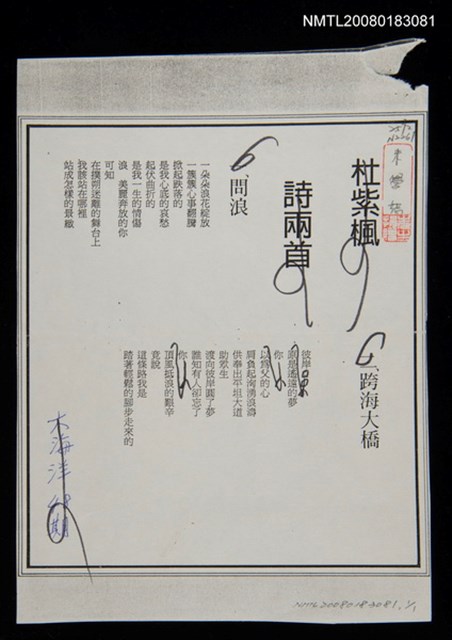 NMTL20080183081
杜紫楓
詩兩首
一、問浪
一朵朵浪花綻放
一簇簇心事翻騰
掀起跌落的
是我心底的哀愁
起伏曲折的
是我一生的情傷
浪 美麗奔放的你
可知
在撲朔迷離的舞台上
我該站在哪裡
站成怎樣的景緻
二、跨海大橋
彼岸
你
以為父的心
肩負起洶湧浪濤
供奉出平坦大道
助眾生
渡向彼岸圓了夢
誰知有人卻忘了
你
頂風抵浪的艱辛
竟說
這條路我是
踏著輕鬆的腳步走來的
大海洋
期
NMTL20080183081, 1/1